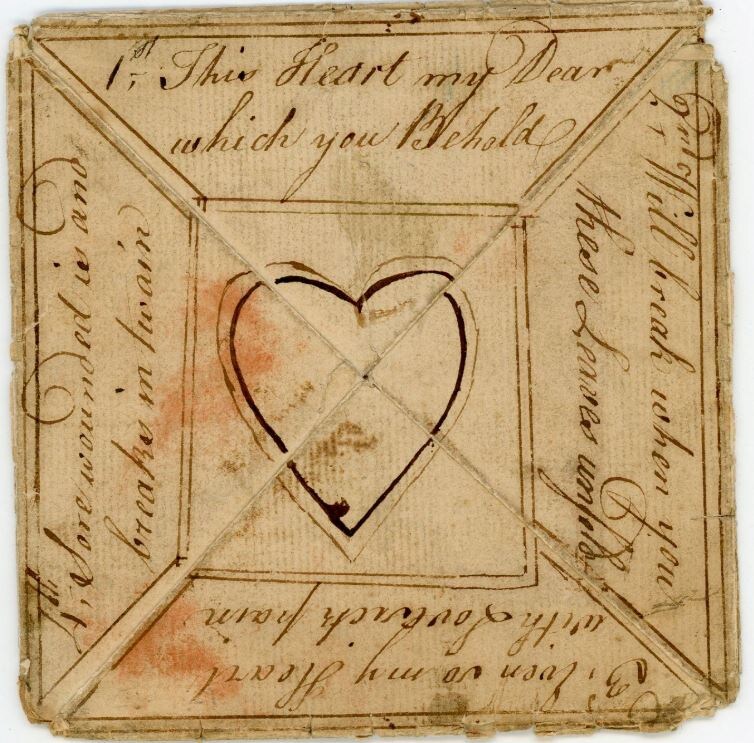 1st, This Heart my Dear
which you Behold
2nd, Will break when you
these Leaves unfold
3, Even so my Heart
with Lovesick pain
4th, Sore wounded is and
breaks in twain